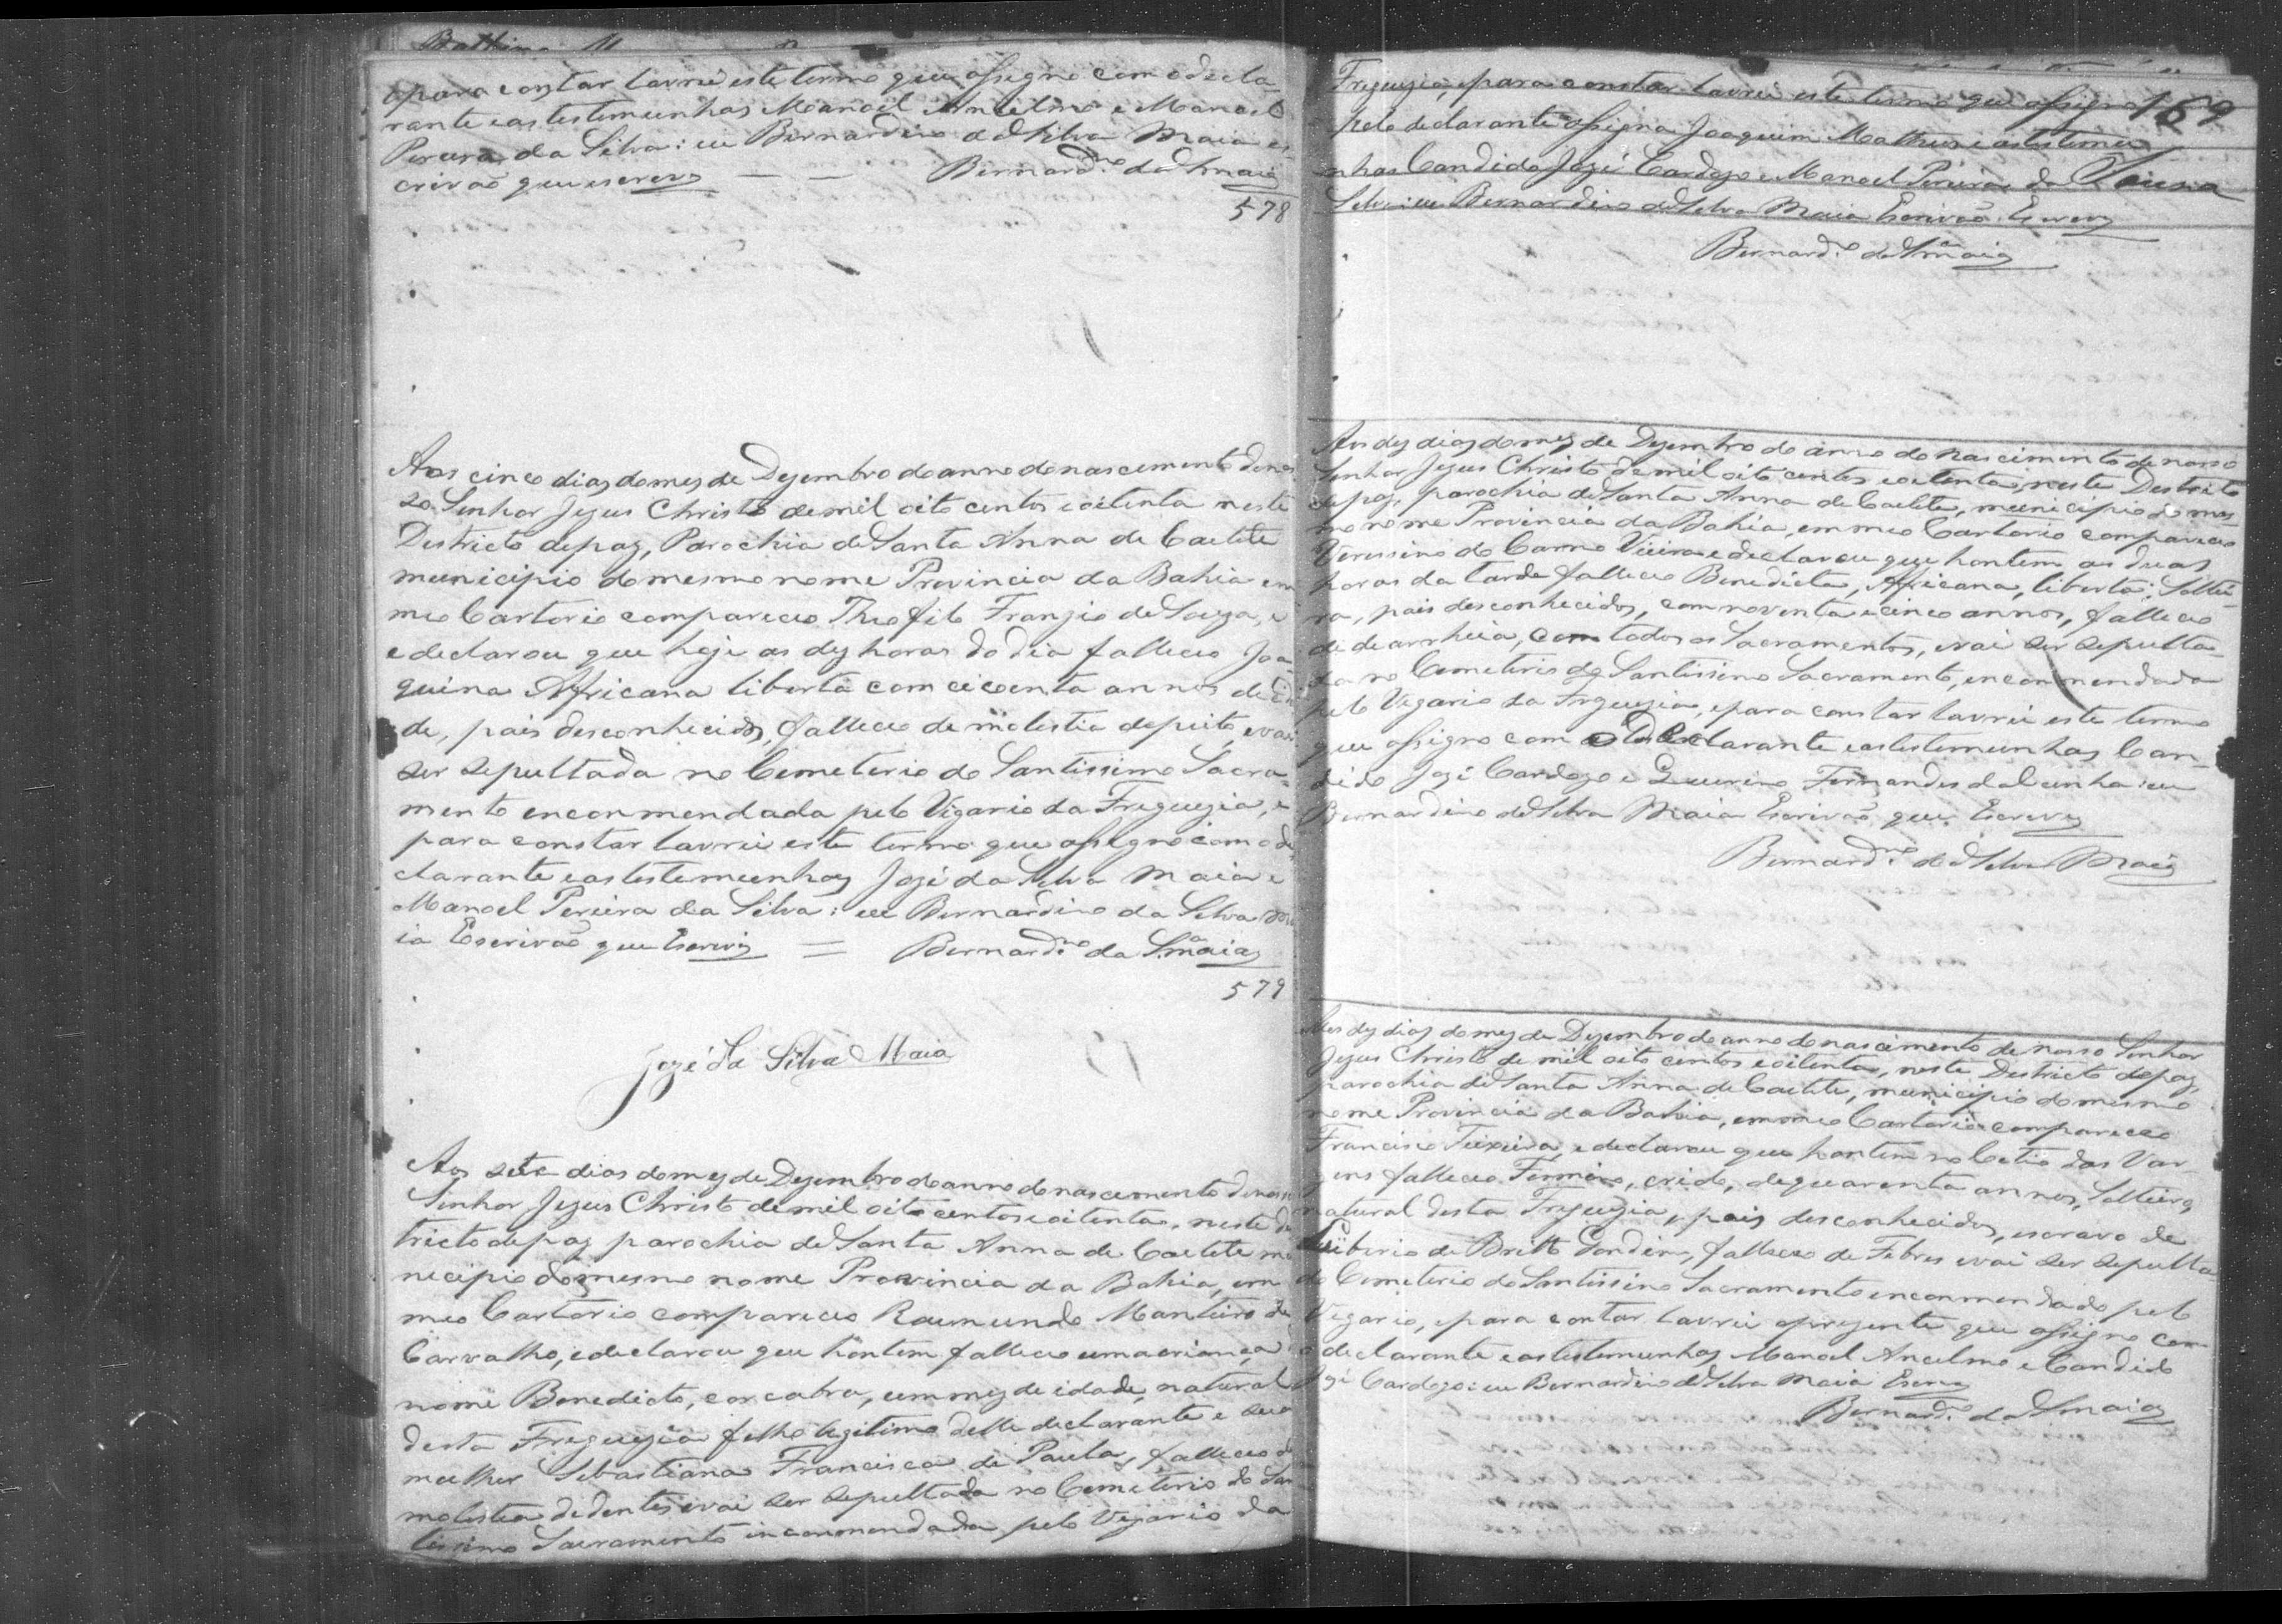 epara constar lavrei este termo que assigno com o decla-
rante e as testemunhas Manoel Ancelmo e Manoel
Pereira da Silva: eu Bernardino da Silva Maia es-
crivaõ que escrevy — — Bernard.no da S.a Maia
578
Aos cinco dias do mes de Dezembro do anno do nascimento de nos
so Senhor Jezus Christo de mil oito centos e oitenta neste
Destricto de paz, Parochia de Santa Anna de Caetite
municipio do mesmo nome Provincia da Bahia em
meo Cartorio compareceo Theofilo Franzio de Souza, e
e declarou que hoje as dez horas do dia falleceo Joa-
quina Africana liberta com cicoenta annos de ida
de, pais desconhecidos, falleceo de molestia de peito, e vai
ser sepultada no Cemeterio do Santissimo Sacra-
mento encommendada pelo Vigario da Freguezia, e
para constar lavrei este termo que assigno com o de
clarante e as testemunhas Jozé da Silva Maia e
Manoel Pereira da Silva: eu Bernardino da Silva Ma
ia Escrivaõ que Escrevy = Bernard.no da S.a Maia
579
Jozé da Silva Maia
Aos sete dias do mez de Dezembro do anno do nascimento de nosso
Senhor Jezus Christo de mil oito centos e oitenta, neste des
tricto de paz parochia de Santa Anna de Caetite mu
nicipio do mesmo nome Provincia da Bahia, em
meo Cartorio compareceo Raimundo Monteiro de
Carvalho, e declarou que hontem falleceo uma criança
nome Benedicto, cor cabra, um mez de idade, natural
desta Freguezia filho legitimo delle declarante e sua
mulher Sebastiana Francisca de Paula, falleceo de
molestia de dentes e vai ser sepultada no Cemeterio do San
tissimo Sacramento incommendada pelo Vigario da
Freguezia, e para constar lavrei este termo que assigno 169
pelo declarante assigna Joaquim Matheus e as testemu
nhas Candido Jozé Cardozo e Manoel Pereira da Sousa
Silva: eu Bernardino da Silva Maia Escrivaõ Escrevy
Bernard.o da S.a Maia
Aos dez dias do mez de Dezembro do anno do nascimento de nosso
Senhor Jezus Christo de mil oito centos e oitenta, neste Destricto
de paz, parochia de Santa Anna de Caetite, municipio do mes-
mo nome Provincia da Bahia, em meo Cartorio compareceo
Verissimo do Carmo Vieira e declarou que hontem as duas
horas da tarde falleceo Benedicta, Africana, liberta, Soltei-
ra, pais desconhecidos, com noventa e cinco annos, falleceo
de diarrheia, com todos os Sacramentos, e vai ser sepulta-
da no Cemeterio do Santissimo Sacramento, encommendada
pelo Vigario da Freguezia, e para constar lavrei este termo
que assigno com o Declarante e as testemunhas Can-
dido Jozé Cardozo e Querino Fernandes da Cunha: eu
Bernardino da Silva Maia Escrivaõ que Escrevy
Bernard.no da Silva Maia
Aos dez dias do mez de Dezembro do anno do nascimento de nosso Senhor
Jezus Christo de mil oito centos e oitenta, neste Destricto de paz,
parochia de Santa Anna de Caetite, municipio do mesmo
nome Provincia da Bahia, em meo Cartorio compareceo
Francisco Teixeira, e declarou que hontem no Citio das Var-
gens falleceo Firmino, criolo, de quarenta annos, Solteiro
natural desta Freguezia, pais desconhecidos, escravo de
Liberio de Britto Gondim, falleceo de Febres e vai ser sepulta
do Cemeterio do Santissimo Sacramento encommendado pelo
Vigario, e para contar lavrei o prezente que assigno com
o declarante e as testemunhas Manoel Ancelmo e Candido
Jozé Cardozo: eu Bernardino da Silva Maia Escrevy
Bernard.o da S.a Maia